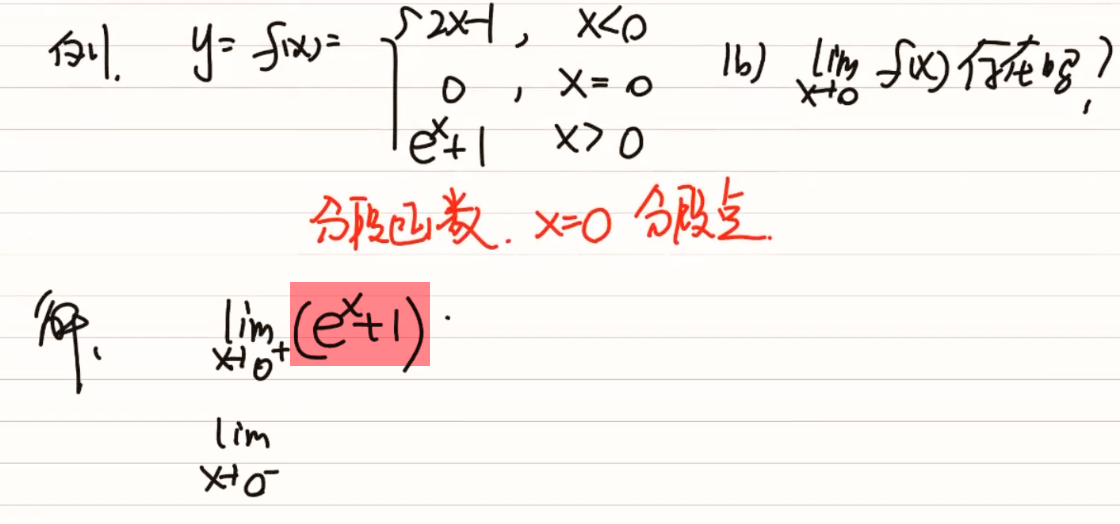 例1. y = f(x) = { 2x-1, x<0
0, x=0
e^x+1 x>0
问 lim x→0 f(x) 存在吗?
分段函数. x=0 分段点.
解. lim x→0+ (e^x+1)
lim x→0-